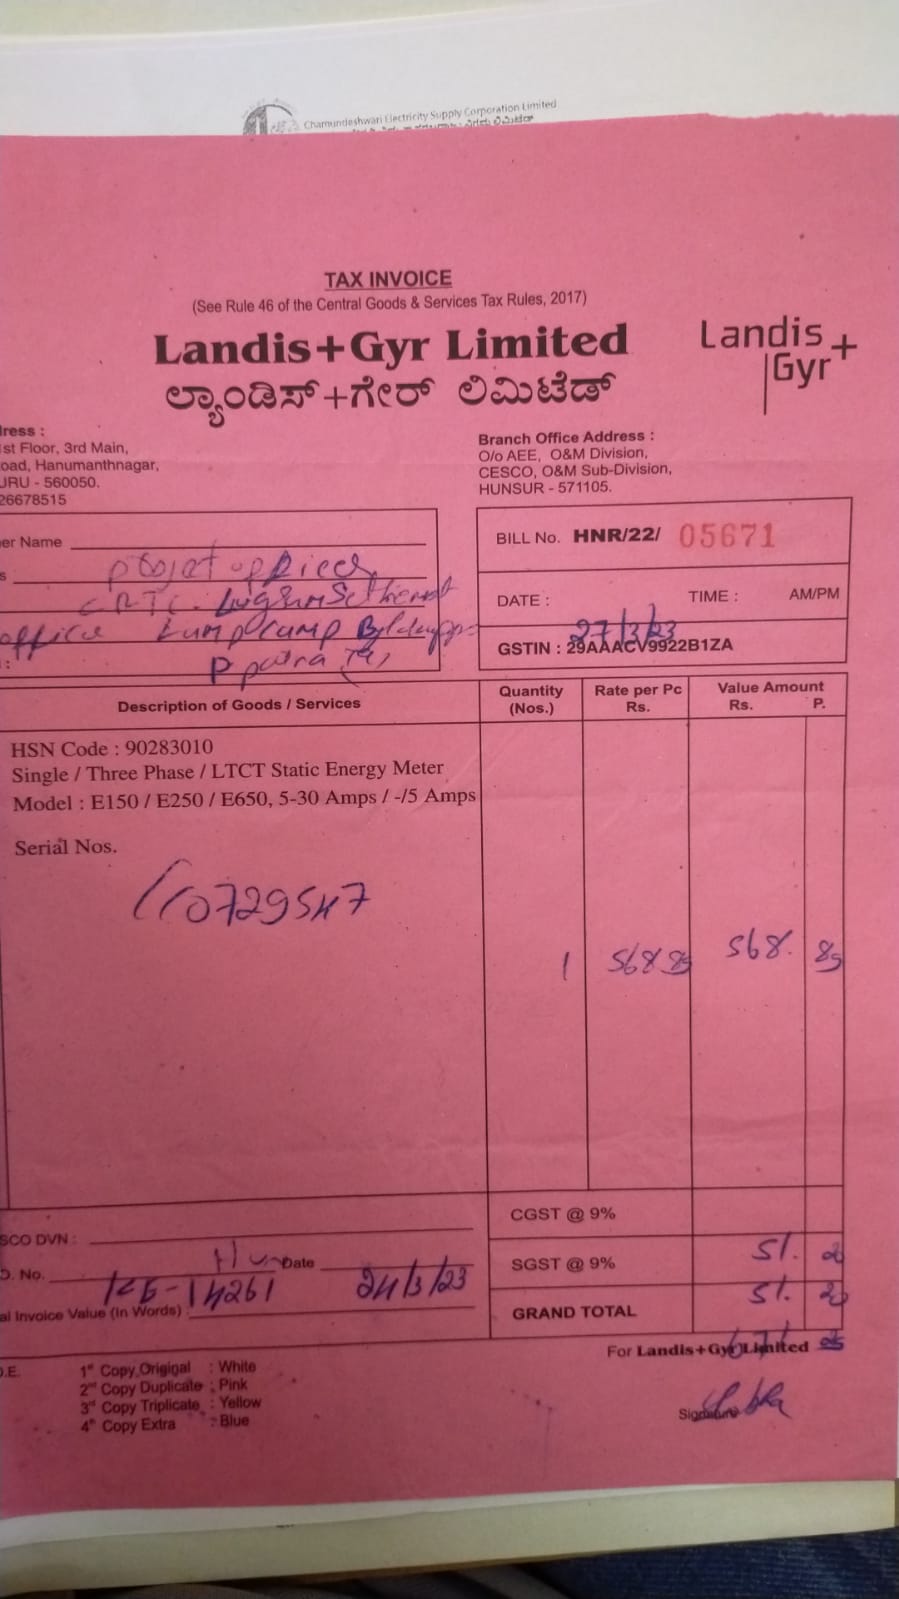 Chamundeshwari Electricity Supply Corporation Limited
TAX INVOICE
(See Rule 46 of the Central Goods & Services Tax Rules, 2017)
Landis+Gyr Limited
ಲ್ಯಾಂಡಿಸ್+ಗೇರ್ ಲಿಮಿಟೆಡ್
Landis
Gyr+
ress :
st Floor, 3rd Main,
oad, Hanumanthnagar,
URU - 560050.
26678515
Branch Office Address :
O/o AEE, O&M Division,
CESCO, O&M Sub-Division,
HUNSUR - 571105.
er Name
office
BILL No. HNR/22/ 05671
DATE : 27/3/23 TIME : AM/PM
GSTIN : 29AAACV9922B1ZA
Description of Goods / Services
Quantity (Nos.)
Rate per Pc Rs.
Value Amount Rs. P.
HSN Code : 90283010
Single / Three Phase / LTCT Static Energy Meter
Model : E150 / E250 / E650, 5-30 Amps / -/5 Amps
Serial Nos.
1 568. 568.
CGST @ 9%
SGST @ 9% 51.
GRAND TOTAL 51.
SCO DVN :
Hun
O. No. Date 24/3/23
al Invoice Value (In Words) :
For Landis+Gyr Limited
O.E.
1st Copy Original : White
2nd Copy Duplicate : Pink
3rd Copy Triplicate : Yellow
4th Copy Extra : Blue
Signature